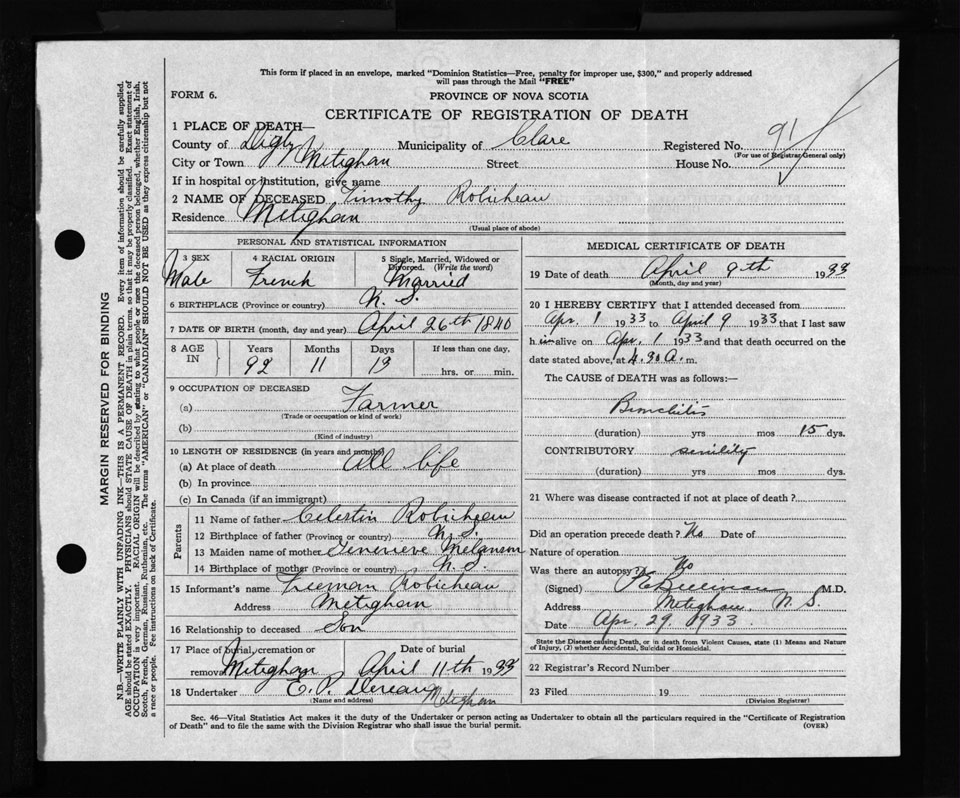 This form if placed in an envelope, marked "Dominion Statistics—Free, penalty for improper use, $300," and properly addressed
will pass through the Mail "FREE"
FORM 6.
PROVINCE OF NOVA SCOTIA
CERTIFICATE OF REGISTRATION OF DEATH
1 PLACE OF DEATH—
County of Digby Municipality of Clare Registered No. 91
(For use of Registrar General only)
City or Town Metighan Street House No.
If in hospital or institution, give name
2 NAME OF DECEASED Timothy Robicheau
Residence Metighan
(Usual place of abode)
PERSONAL AND STATISTICAL INFORMATION
3 SEX 4 RACIAL ORIGIN 5 Single, Married, Widowed or
Divorced. (Write the word)
Male French Married
6 BIRTHPLACE (Province or country) N. S.
7 DATE OF BIRTH (month, day and year) April 26th 1840
8 AGE IN Years Months Days If less than one day,
92 11 13 hrs. or min.
9 OCCUPATION OF DECEASED
(a) Farmer
(Trade or occupation or kind of work)
(b)
(Kind of industry)
10 LENGTH OF RESIDENCE (in years and months)
(a) At place of death All life
(b) In province
(c) In Canada (if an immigrant)
Parents
11 Name of father Celestin Robicheau
12 Birthplace of father (Province or country) N. S.
13 Maiden name of mother Genevieve Melanson
14 Birthplace of mother (Province or country) N. S.
15 Informant's name Freeman Robicheau
Address Metighan
16 Relationship to deceased Son
17 Place of burial, cremation or Date of burial
removal Metighan April 11th 1933
18 Undertaker E. P. Metighan
(Name and address)
MEDICAL CERTIFICATE OF DEATH
19 Date of death April 9th 1933
(Month, day and year)
20 I HEREBY CERTIFY that I attended deceased from
Apr. 1 1933 to April 9 1933 that I last saw
h im alive on Apr. 1 1933 and that death occurred on the
date stated above, at 4.30 a. m.
The CAUSE of DEATH was as follows:—
Bronchitis
(duration) yrs mos 15 dys.
CONTRIBUTORY senility
(duration) yrs mos dys.
21 Where was disease contracted if not at place of death?
Did an operation precede death? No Date of
Nature of operation
Was there an autopsy? No
(Signed) M.D.
Address Metighan, N. S.
Date Apr. 29, 1933.
State the Disease causing Death, or in death from Violent Causes, state (1) Means and Nature
of Injury, (2) whether Accidental, Suicidal or Homicidal.
22 Registrar's Record Number
23 Filed 19
(Division Registrar)
Sec. 46—Vital Statistics Act makes it the duty of the Undertaker or person acting as Undertaker to obtain all the particulars required in the "Certificate of Registration
of Death" and to file the same with the Division Registrar who shall issue the burial permit. (OVER)
MARGIN RESERVED FOR BINDING
N.B.—WRITE PLAINLY WITH UNFADING INK—THIS IS A PERMANENT RECORD. Every item of information should be carefully supplied.
AGE should be stated EXACTLY. PHYSICIANS should STATE CAUSE OF DEATH in plain terms, so that it may be properly classified. Exact statement of
OCCUPATION is very important. RACIAL ORIGIN will be described by stating to what people or race the deceased person belonged, whether English, Irish,
Scotch, French, German, Russian, Ruthenian, etc. The terms "AMERICAN" or "CANADIAN" SHOULD NOT BE USED as they express citizenship but not
a race or people. See instructions on back of Certificate.